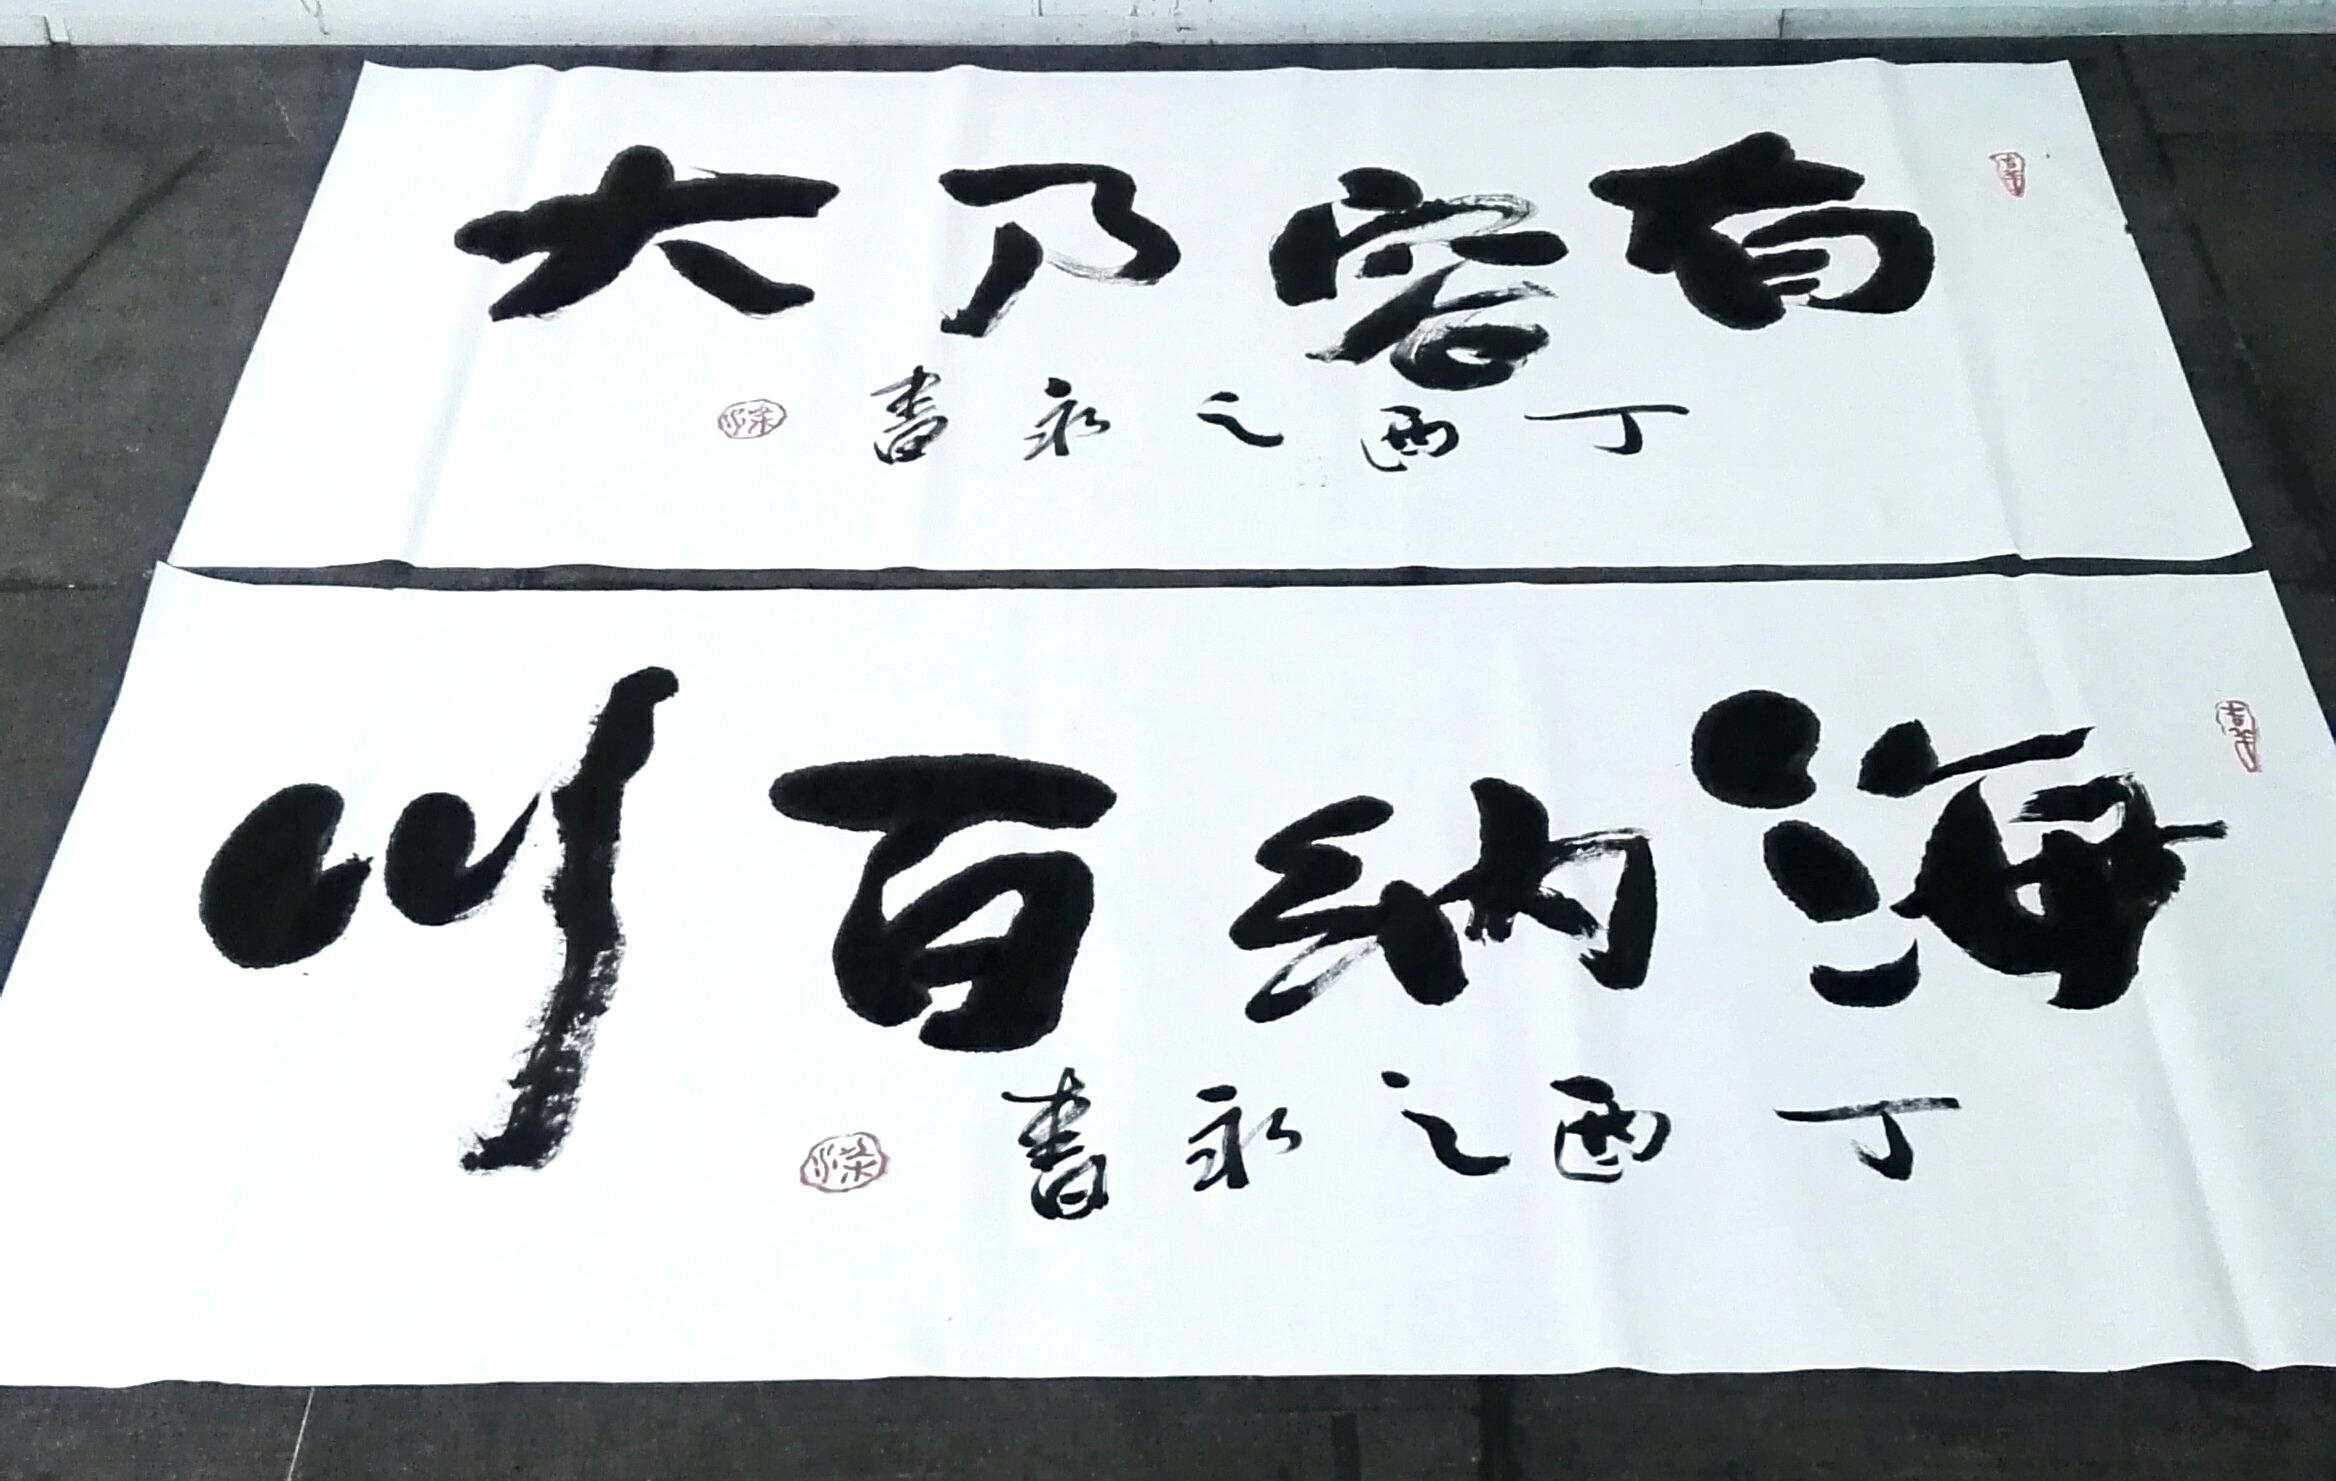 有容乃大
丁酉之永書
海納百川
丁酉之永書